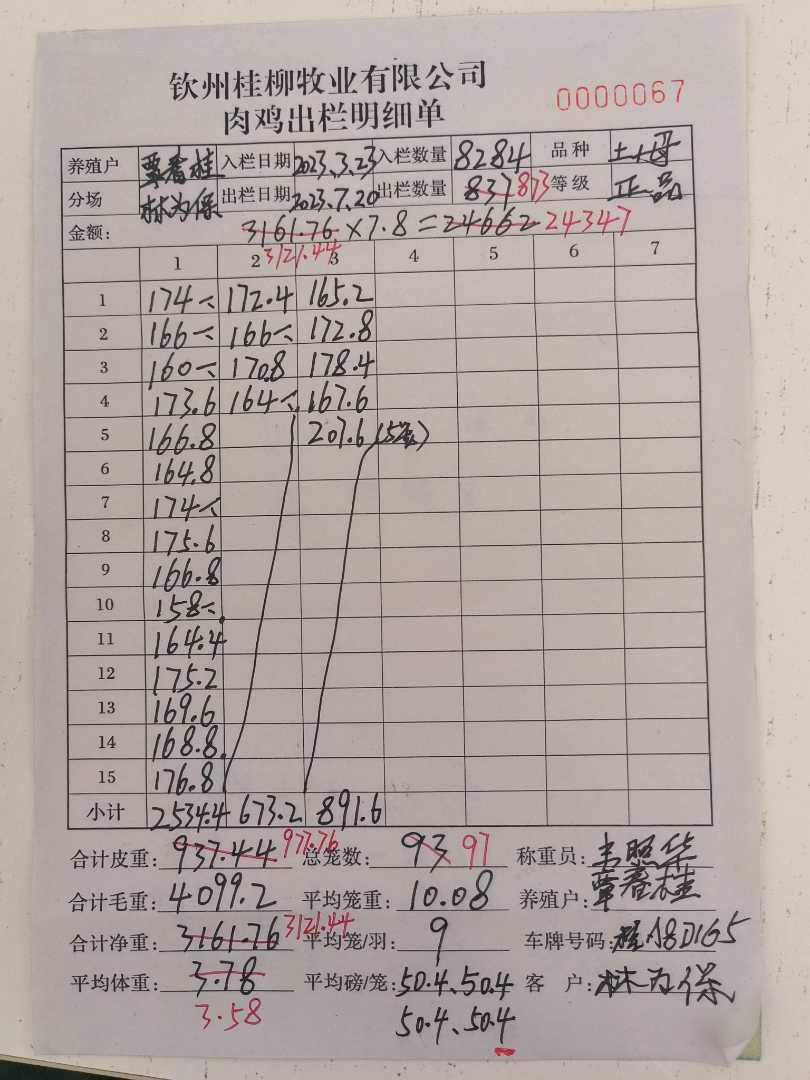 钦州桂柳牧业有限公司
肉鸡出栏明细单
0000067
养殖户 覃春桂 入栏日期 2023.3.23 入栏数量 8284 品种
分场 林为保 出栏日期 2023.7.20 出栏数量 837 873 等级 正品
金额: 3161.76×7.8=24662 24347
3121.44
1 2 3 4 5 6 7
1 174 172.4 165.2
2 166 166 172.8
3 160 170.8 178.4
4 173.6 164 167.6
5 166.8 207.6 (5笼)
6 164.8
7 174
8 175.6
9 166.8
10 158
11 164.4
12 175.2
13 169.6
14 168.8
15 176.8
小计 2534.4 673.2 891.6
合计皮重: 937.44 977.76 总笼数: 93 97 称重员: 韦照华
合计毛重: 4099.2 平均笼重: 10.08 养殖户: 覃春桂
合计净重: 3161.76 3121.44 平均笼/羽: 9 车牌号码: 桂A8D165
平均体重: 3.78 平均磅/笼: 50.4、50.4 客 户: 林为保
3.58 50.4、50.4